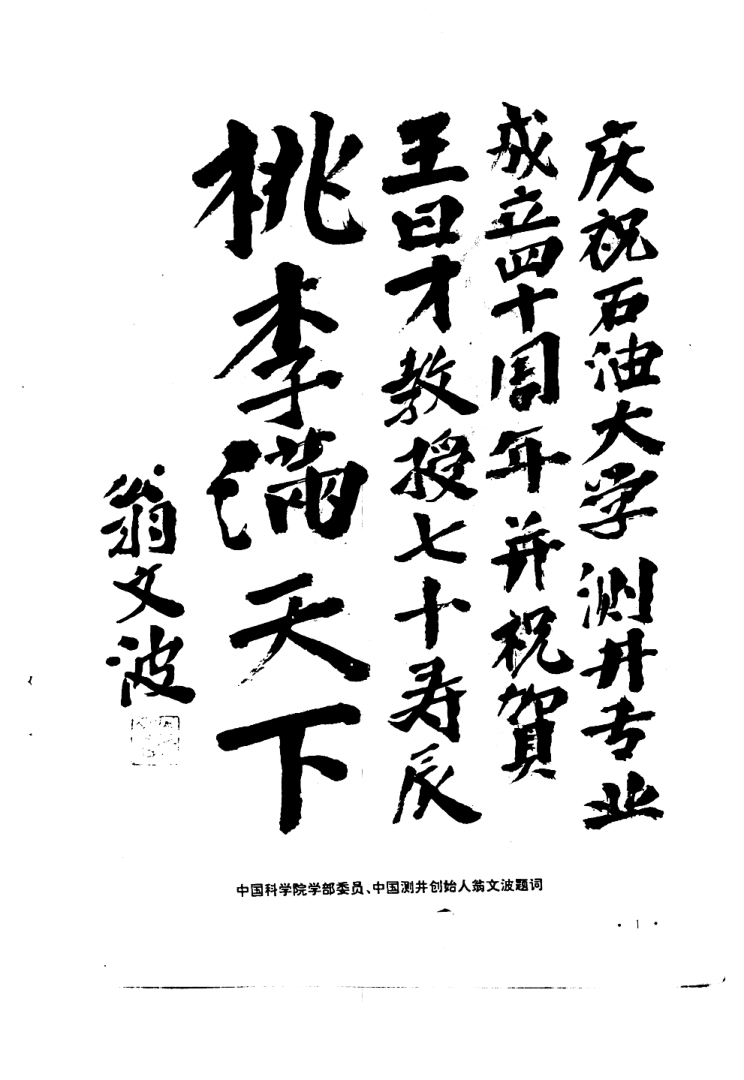 庆祝石油大学测井专业
成立四十周年并祝賀
王曰才教授七十寿辰
桃李满天下
翁文波
中国科学院学部委员、中国测井创始人翁文波题词
·1·